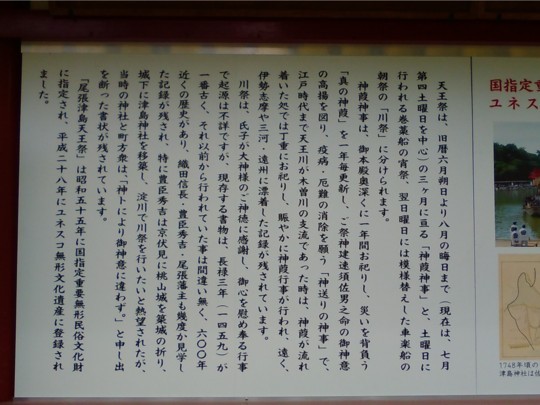 天王祭は、旧暦六月朔日より八月の晦日まで(現在は、七月
第四土曜日を中心)の三ヶ月に亘る「神葭神事」と、土曜日に
行われる巻藁船の宵祭、翌日曜日には模様替えした車楽船の
朝祭の「川祭」に分けられます。
神葭神事は、御本殿奥深くに一年間お祀りし、災いを背負う
「真の神葭」を一年毎更新し、ご祭神建速須佐男之命の御神意
の高揚を図り、疫病・厄難の消除を願う「神送りの神事」で、
江戸時代まで天王川が木曽川の支流であった時は、神葭が流れ
着いた処では丁重にお祀りし、賑やかに神葭行事が行われ、遠く、
伊勢志摩や三河・遠州に漂着した記録が残されています。
川祭は、氏子が大神様のご神徳に感謝し、御心を慰め奉る行事
で起源は不詳ですが、現存する書物は、長禄三年(一四五九)が
一番古く、それ以前から行われていた事は間違い無く、六〇〇年
近くの歴史があり、織田信長・豊臣秀吉・尾張藩主も幾度か見学し
た記録が残され、特に豊臣秀吉は京伏見に桃山城を築城の折り、
城下に津島神社を移築し、淀川で川祭を行いたいと熱望されたが、
当時の神社と町方衆は、「神卜により御神意に違わず。」と申し出
を断った書状が残されています。
「尾張津島天王祭」は昭和五十五年に国指定重要無形民俗文化財
に指定され、平成二十八年にユネスコ無形文化遺産に登録され
ました。
国指定重
ユネス
1748年頃の
津島神社は佐